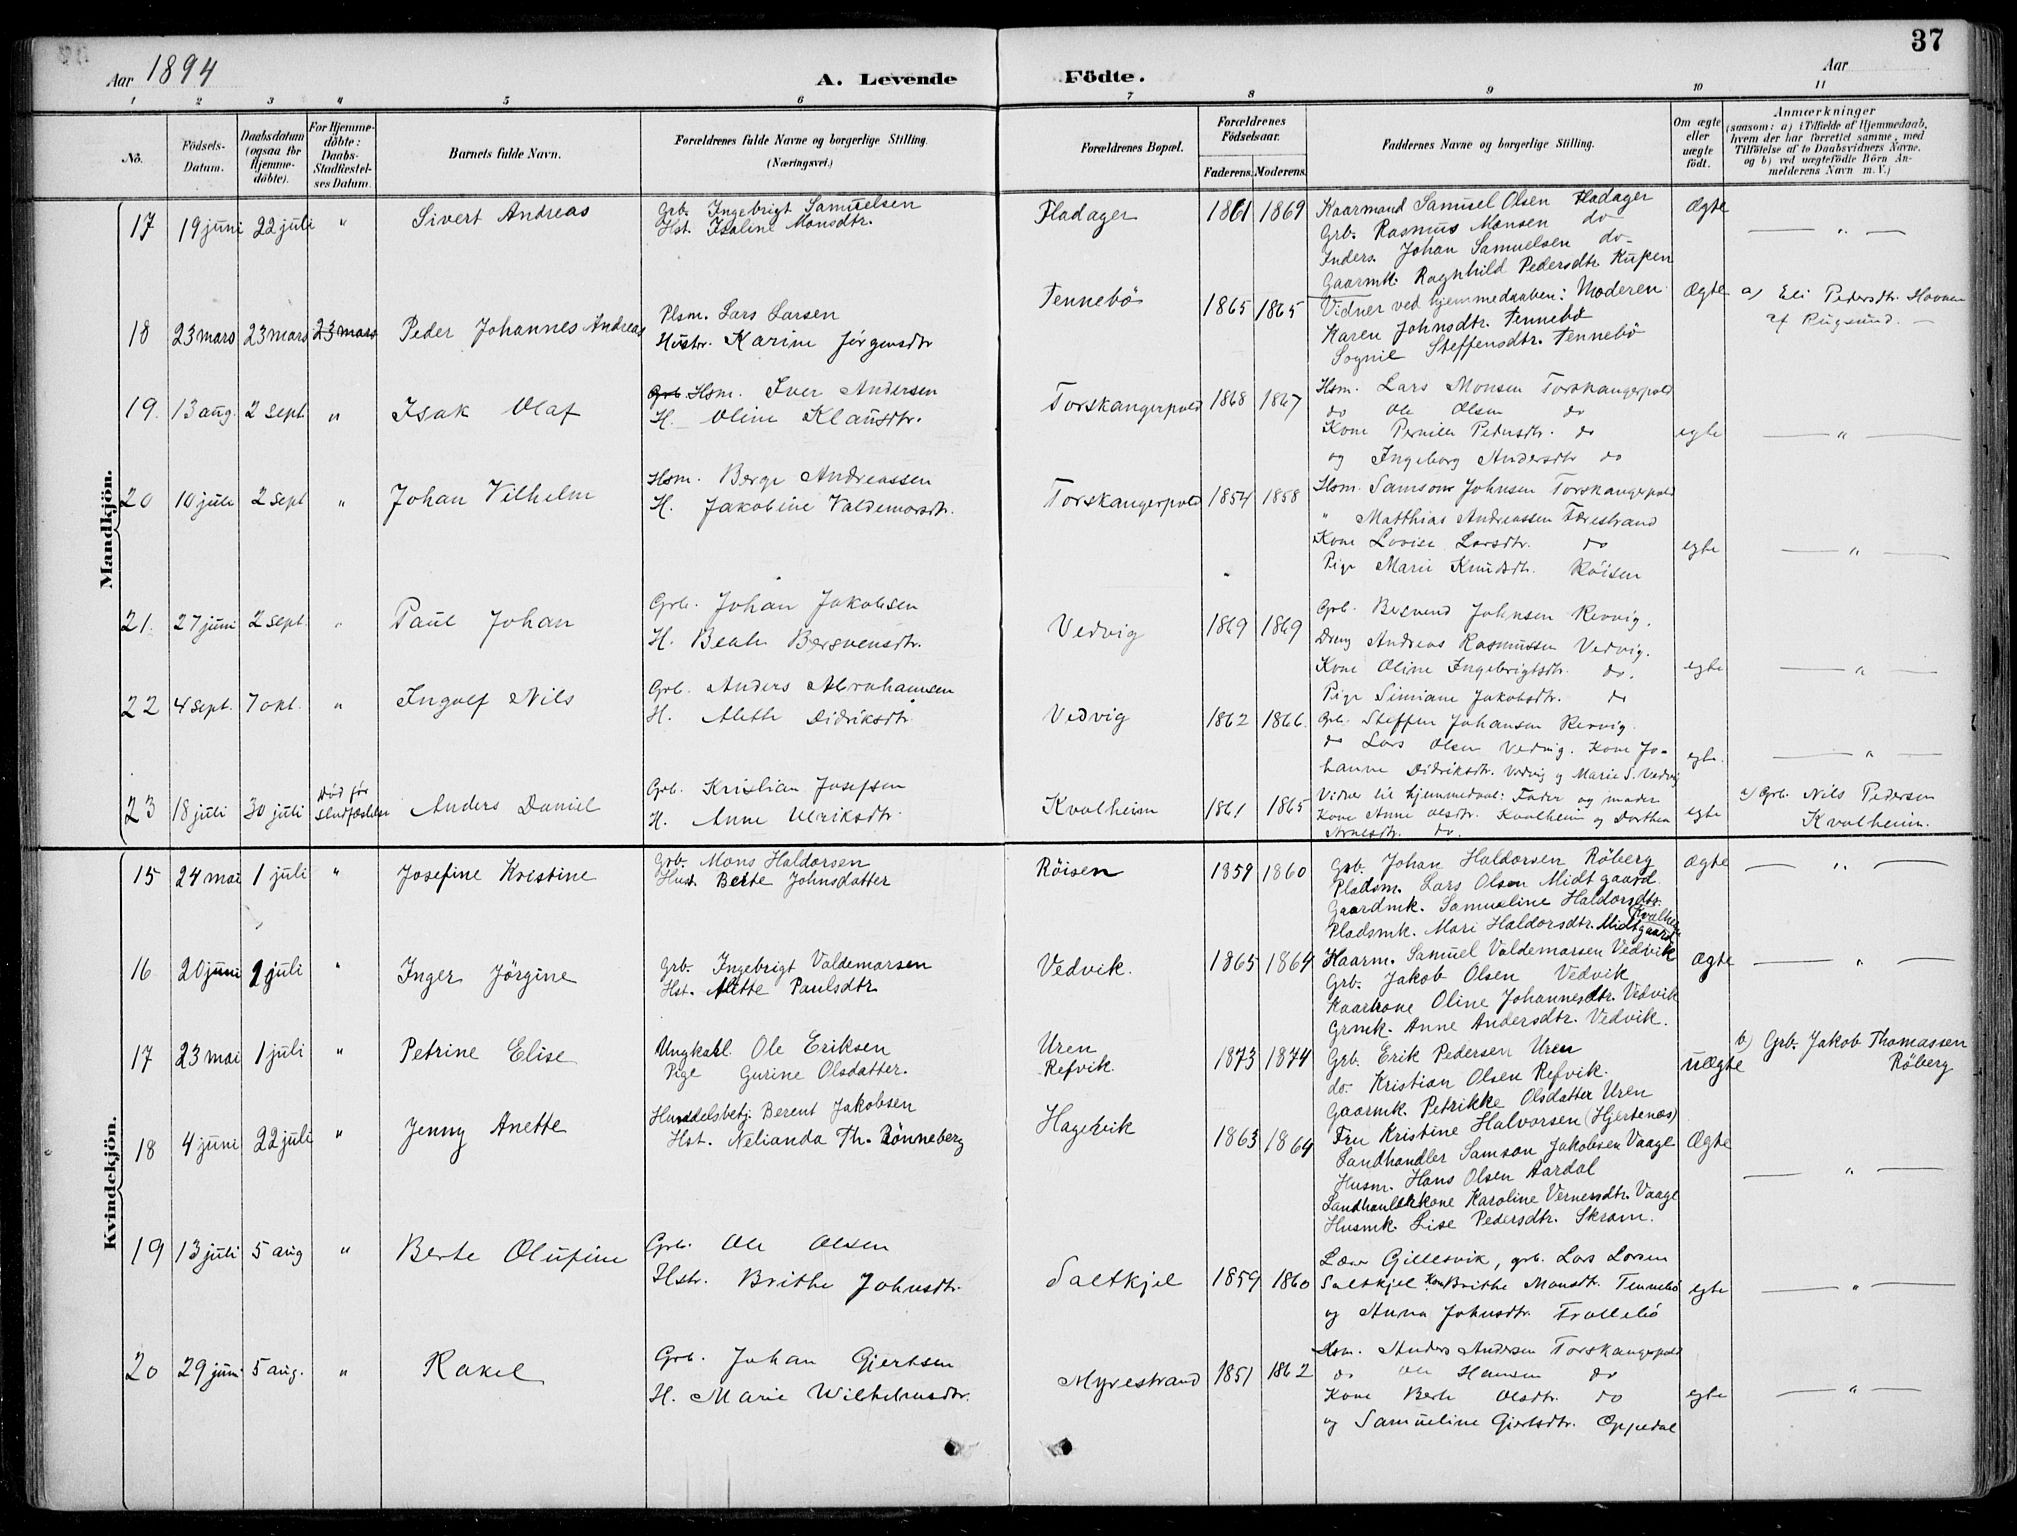 37
Aar 1894
A. Levende Födte.
Aar
1 2 3 4 5 6 7 8 9 10 11
No.
Födsels-Datum.
Daabsdatum (ogsaa for Hjemme-döbte).
For Hjemme-döbte: Daabs-Stadfæstel-ses Datum.
Barnets fulde Navn.
Forældrenes fulde Navne og borgerlige Stilling. (Næringsvei.)
Forældrenes Bopæl.
Forældrenes Födselsaar.
Faderens. Moderens.
Faddernes Navne og borgerlige Stilling.
Om ægte eller uægte födt.
Anmærkninger (saasom: a) i Tilfælde af Hjemmedaab, hvem der har forrettet samme, med Tilföielse af to Daabsvidners Navne, og b) ved uægtefödte Börn An-melderens Navn m. V.)
Mandkjön.
17 19 juni 22 juli " Sivert Andreas
Grb. Ingebrigt Samuelsen
Hst. Isaline Monsdtr.
Fladager 1861 1869
Kaarmand Samuel Olsen Fladager
Grb. Rasmus Monsen do
Inders. Johan Samuelsen do
Gaarmk. Ragnhild Pedersdtr. Kupen
Ægte — " —
18 23 mars 23 mars 23 mars Peder Johannes Andreas
Plsm. Lars Larsen
Hustr. Karine Jørgensdtr
Tennebö 1865 1865
Vidner ved hjemmedaaben: Moderen
Karen Johnsdtr. Tennebö
Steffensdtr. Tennebö
Ægte
a) Eli Pedersdtr. Havnen
af Rugsund. —
19. 13 aug. 2 sept " Isak Olaf
Grb. Hsm. Iver Andersen
H. Oline Klausdtr.
Torskangerpold 1868 1867
Hsm. Lars Monsen Torskangerpold
do Ole Olsen do
Kone Pernille Pedersdtr. do
og Ingeborg Andersdtr do
egte — " —
20 10 juli 2 sept " Johan Vilhelm
Hsm. Berge Andreassen
H. Jakobine Valdemarsdtr.
Torskangerpold 1854 1858
Hsm. Samson Johnsen Torskangerpold
" Matthias Andreassen Færestrand
Kone Lovise Larsdtr. do
Pige Marie Knudsdtr. Röisen
egte — " —
21. 27 juni 2 sept. " Paul Johan
Grb. Johan Jakobsen
H. Beate Bersvensdtr.
Vedvig 1869 1869
Grb. Bersvend Johnsen Revvig.
Dreng Andreas Rasmussen Vedvig.
Kone Oline Ingebrigtsdtr. do.
Pige Simiane Jakobsdtr. do
egte — " —
22 4 sept. 7 okt. " Ingolf Nils
Grb. Anders Abrahamsen
H. Alette Didriksdtr
Vedvig 1862 1866.
Grb. Steffen Johansen Revvig.
do Lars Olsen Vedvig. Kone Jo-
hanne Didriksdtr. Vedvig og Marie S. Vedvig
egte. — " —
23 18 juli 30 juli Død før stadfæstelse Anders Daniel
Grb. Kristian Josefsen
H. Anne Ulriksdtr.
Kvalheim 1861 1865
Vidner til hjemmedaab: Fader og moder
Kone Anne Olsdtr. Kvalheim og Dorthea
Arnesdtr. do.
egte
a) Grb. Nils Pedersen
Kvalheim.
Kvindekjön.
15 24 mai 1 juli " Josefine Kristine
Grb. Mons Haldorsen
Hust. Berte Johnsdatter
Röisen 1859 1860
Grb. Johan Haldorsen Röberg
Pladsm. Lars Olsen Midtgaard.
Gaardmk. Samueline Haldorsdtr. Kvalheim
Pladsmk. Mari Haldorsdtr. Midtgaard
Ægte — " —
16 20 juni 1 juli " Inger Jörgine
Grb. Ingebrigt Valdemarsen
Hst. Alette Paulsdtr
Vedvik. 1865 1864
Kaarm. Samuel Valdemarsen Vedvik
Grb. Jakob Olsen Vedvik
Kaarkone Oline Johannesdtr. Vedvik
Grmk. Anne Andersdtr. Vedvik.
Ægte — " —
17 23 mai 1 juli " Petrine Elise
Ungkarl. Ole Eriksen
Pige Gurine Olsdatter.
Uren
Refvik. 1873 1874
Grb. Erik Pedersen Uren
do. Kristian Olsen Refvik.
Gaarmk. Petrikke Olsdatter Uren
uægte
b) Grb. Jakob Thomassen
Röberg
18 4 juni 22 juli " Jenny Anette
Handelsbetj. Berent Jakobsen
Hst. Nelianda Th. Rönneberg
Hagevik 1863 1864
Fru Kristine Halvorsen (Hjertenæs)
Landhandler Samson Jakobsen Vaage
Husm. Hans Olsen Aardal
Landhandlerkone Karoline Vernersdtr. Vaage
Husmk. Lise Pedersdtr. Skram.
Ægte — " —
19 13 juli 5 aug " Berte Olufine
Grb. Ole Olsen
Hstr. Brithe Johnsdtr.
Saltkjel 1859 1860
Lær Gillesvik, grb. Lars Larsen
Saltkjel Kone Brithe Monsdtr. Tennebö
og Anna Johnsdtr. Trollebö
egte — " —
20 29 juni 5 aug. " Rakel
Grb. Johan Gjertsen
H. Marie Wilhelmsdtr.
Myrestrand 1851 1862
Hsm. Anders Andersen Torskangerpold
do Ole Hansen do
Kone Berte Olsdtr. do
og Samueline Gjertsdtr. Oppedal
egte — " —